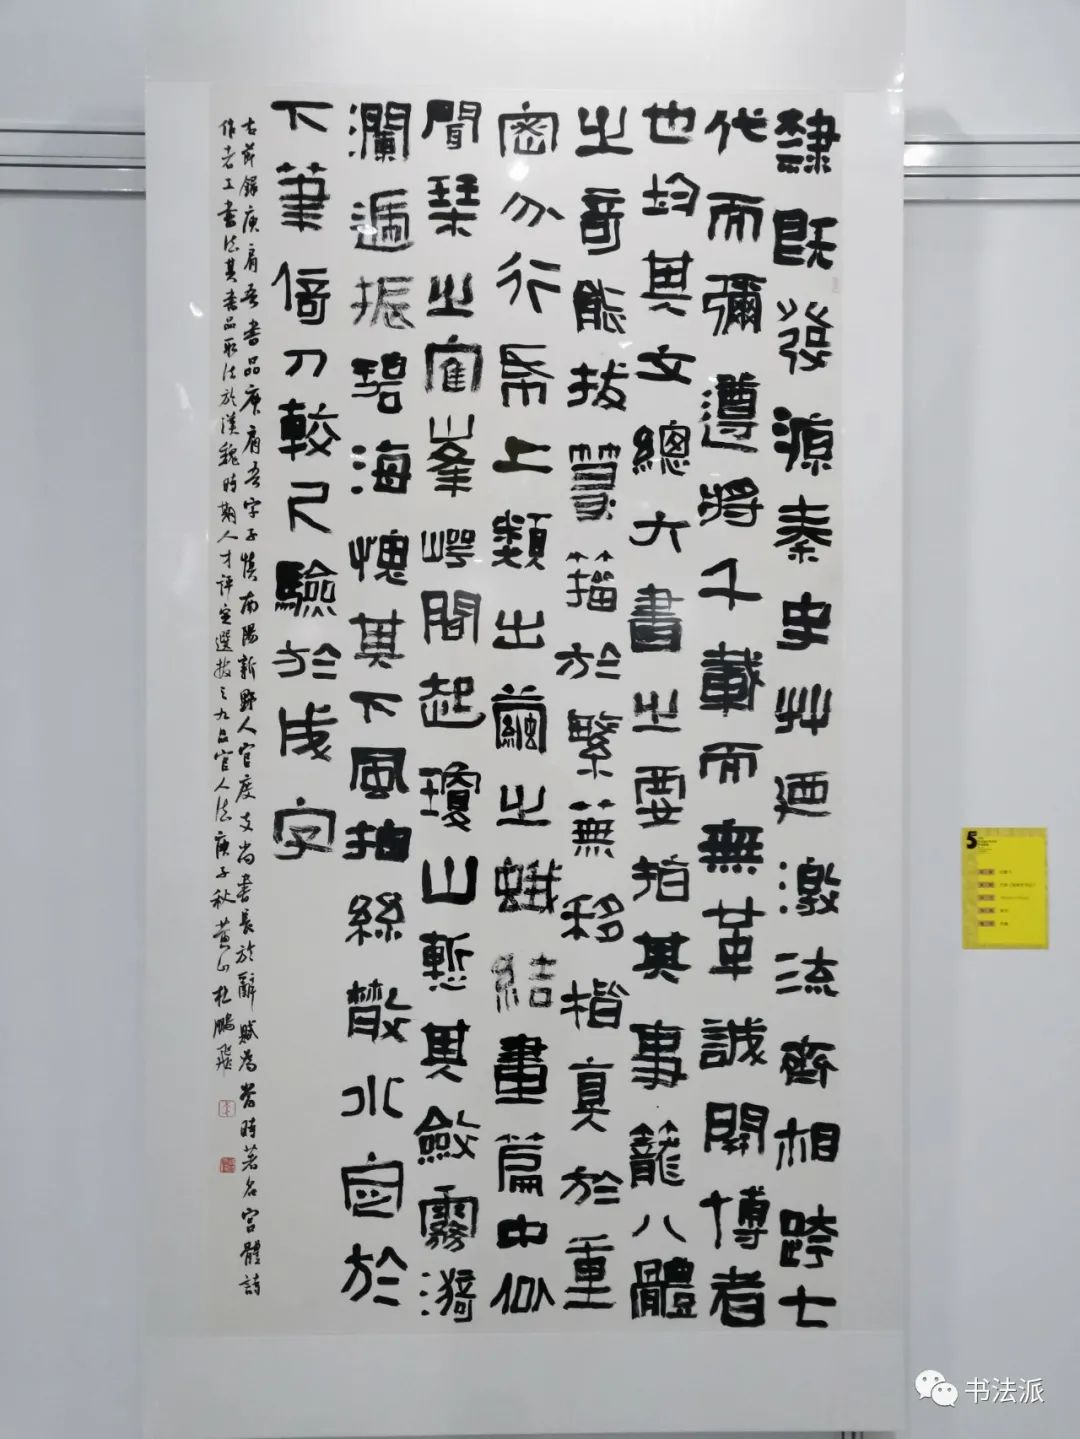 隸既發源秦史艸廼激流齊相跨七
代而彌遵將千載而無革誠開博者
也均其文總六書之要指其事籠八體
之奇能拔篆籀於繁蕪移楷真於重
密分行帋上類出繭之蛾結畫篇中似
聞琴之寉峯崿間起瓊山慙其斂霧漪
瀾遞振碧海愧其下風抽絲散水定於
下筆倚刀較尺驗於成字
右節錄庾肩吾書品庾肩吾字子慎南陽新野人官度支尚書長於辭賦為當時著名宮體詩
作者工書法其書品取法於漢魏時期人才評定選拔之九品官人法庚子秋黃山杜鵬飛
5
书法派